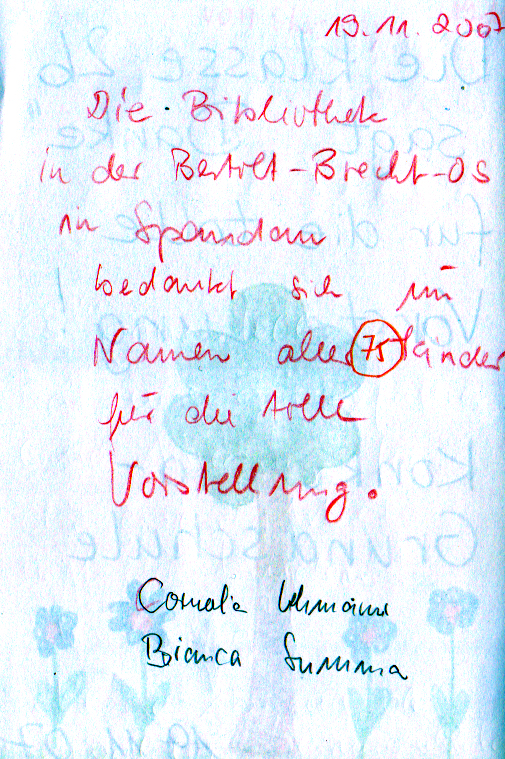 19.11.2007
Die Bibliothek
in der Bertolt-Brecht-OS
in Spandau
bedankt sich im
Namen aller 75 Kinder
für die tolle
Vorstellung.
Cornelia Lehmann
Bianca Summa